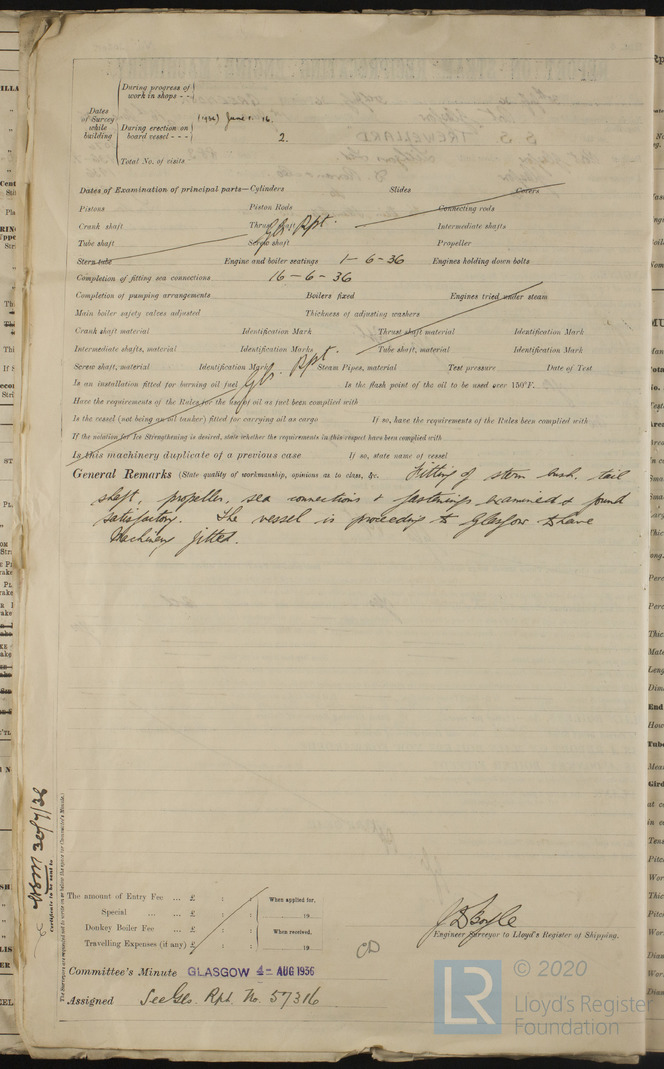 During progress of
work in shops - -
Dates
of Survey
while
building
During erection on
board vessel - - -
(1936) June 1. 16.
2.
Total No. of visits
Dates of Examination of principal parts—Cylinders Slides Covers
Pistons Piston Rods Connecting rods
Crank shaft Thrust shaft Intermediate shafts
Gls. Rpt.
Tube shaft Screw shaft Propeller
Stern tube Engine and boiler seatings 1-6-36 Engines holding down bolts
Completion of fitting sea connections 16-6-36
Completion of pumping arrangements Boilers fixed Engines tried under steam
Main boiler safety valves adjusted Thickness of adjusting washers
Crank shaft material Identification Mark Thrust shaft material Identification Mark
Intermediate shafts, material Identification Marks Tube shaft, material Identification Mark
Screw shaft, material Identification Mark Steam Pipes, material Test pressure Date of Test
Gls. Rpt.
Is an installation fitted for burning oil fuel Is the flash point of the oil to be used over 150°F.
Have the requirements of the Rules for the use of oil as fuel been complied with
Is the vessel (not being an oil tanker) fitted for carrying oil as cargo If so, have the requirements of the Rules been complied with
If the notation for Ice Strengthening is desired, state whether the requirements in this respect have been complied with
Is this machinery duplicate of a previous case If so, state name of vessel
General Remarks (State quality of workmanship, opinions as to class, &c. Fitting of stern bush, tail
shaft, propeller, sea connections & fastenings examined & found
satisfactory. The vessel is proceeding to Glasgow to have
Machinery fitted.
30/7/36
Certificate to be sent to
The Surveyors are requested not to write on or below the space for Committee's Minute.
The amount of Entry Fee ... £ : : When applied for,
Special ... ... £ : : 19
Donkey Boiler Fee ... £ : : When received,
Travelling Expenses (if any) £ : : 19
Engineer Surveyor to Lloyd's Register of Shipping.
Committee's Minute GLASGOW 4 - AUG 1936
Assigned See Gls. Rpt. No. 57316
© 2020
Lloyd's Register
Foundation